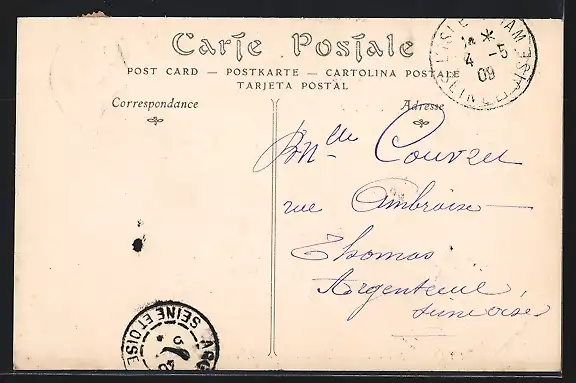 Carte Postale
POST CARD — POSTKARTE — CARTOLINA POSTALE
TARJETA POSTÀL
Correspondance
Adresse
L'ISLE ADAM
4 -5
09
SEINE ET OISE
Mlle Couvreu
rue Ambroise
Thomas
Argenteuil
Seine & Oise
ARG
SEINE ET OISE